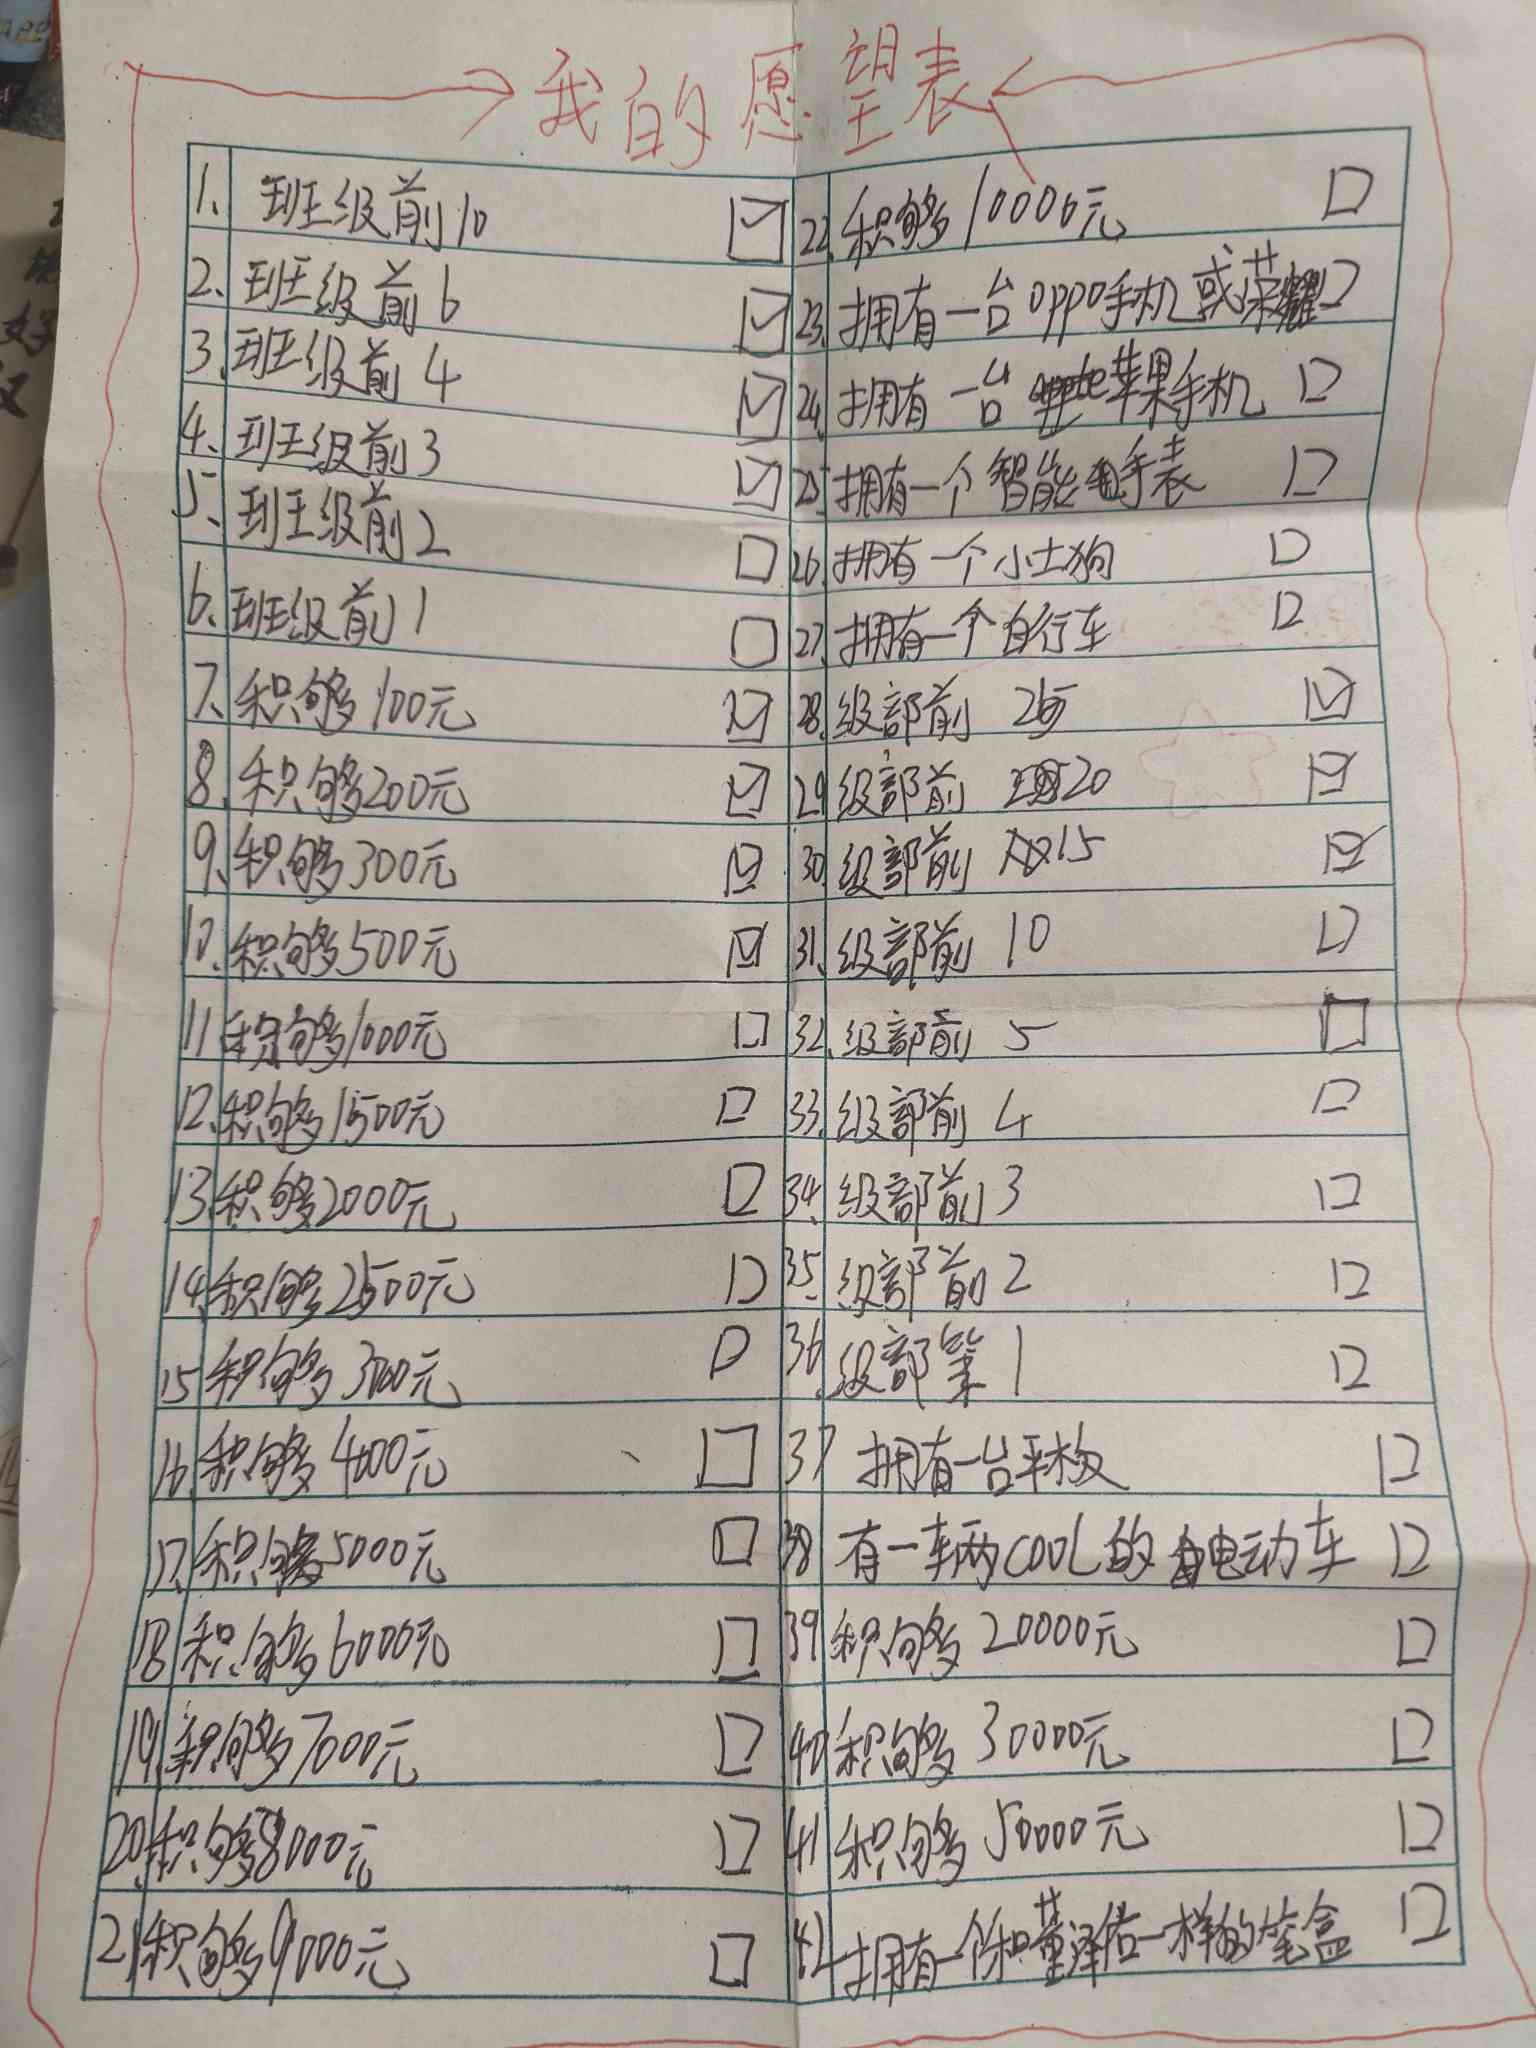 我的愿望表
1. 班级前10 ☑
2. 班级前6 ☑
3. 班级前4 ☑
4. 班级前3 ☑
5. 班级前2 □
6. 班级前1 □
7. 积够100元 ☑
8. 积够200元 ☑
9. 积够300元 ☑
10. 积够500元 ☑
11 积够1000元 □
12. 积够1500元 □
13. 积够2000元 □
14. 积够2500元 □
15 积够3000元 □
16. 积够4000元 □
17. 积够5000元 □
18 积够6000元 □
19. 积够7000元 □
20. 积够8000元 □
21 积够9000元 □
22. 积够10000元 □
23. 拥有一台oppo手机或荣耀 □
24. 拥有一台苹果手机 □
25 拥有一个智能手表 □
26. 拥有一个小土狗 □
27. 拥有一个自行车 □
28. 级部前 25 ☑
29 级部前 20 ☑
30. 级部前 15 ☑
31. 级部前 10 □
32. 级部前 5 □
33. 级部前 4 □
34. 级部前3 □
35. 级部前2 □
36. 级部第1 □
37 拥有一台平板 □
38 有一车两COOL的电动车 □
39 积够20000元 □
40 积够30000元 □
41 积够50000元 □
42 拥有一个和董泽佑一样的笔盒 □